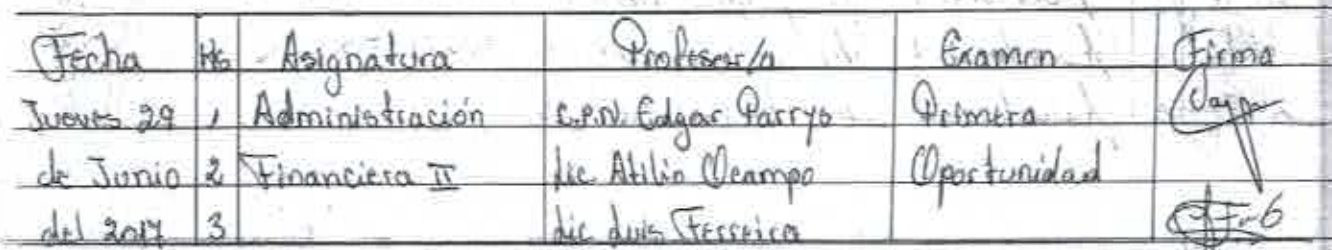 Fecha Hs Asignatura Profesor/a Examen Firma
Jueves 29 1 Administración C.P.N. Edgar Parrys Primera
de Junio 2 Financiera II Lic Atilio Ocampo Oportunidad
del 2017 3 Lic Luis Ferreira